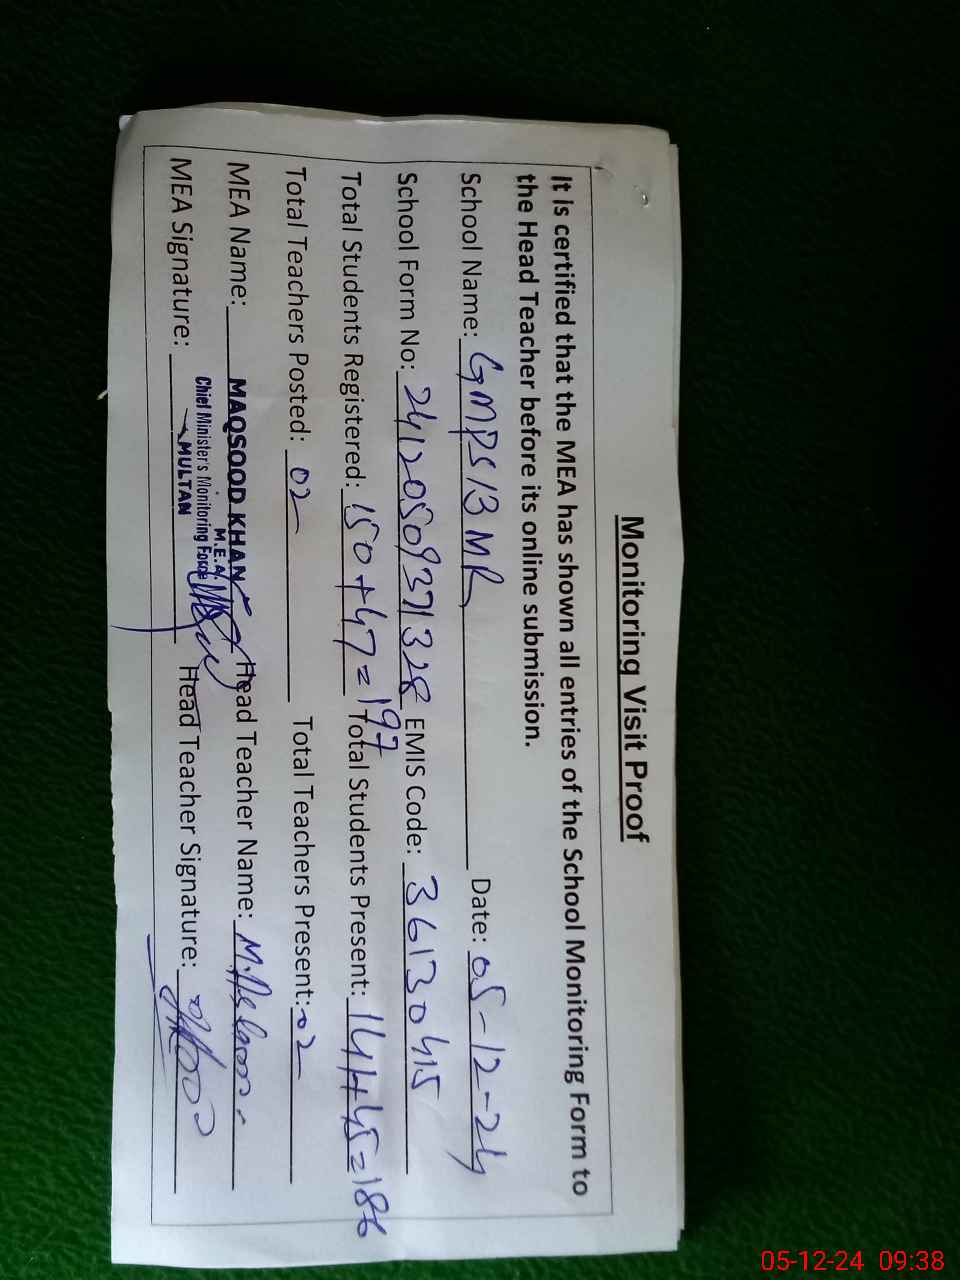 Monitoring Visit Proof
It is certified that the MEA has shown all entries of the School Monitoring Form to
the Head Teacher before its online submission.
School Name: GMPS 13 MR Date: 05-12-24
School Form No: 24120509371328 EMIS Code: 36130415
Total Students Registered: 150+47=197 Total Students Present: 141+45=186
Total Teachers Posted: 02 Total Teachers Present: 02
MEA Name: MAQSOOD KHAN Head Teacher Name: M.
M.E.A.
Chief Minister's Monitoring Force
MULTAN
MEA Signature: Head Teacher Signature:
05-12-24 09:38